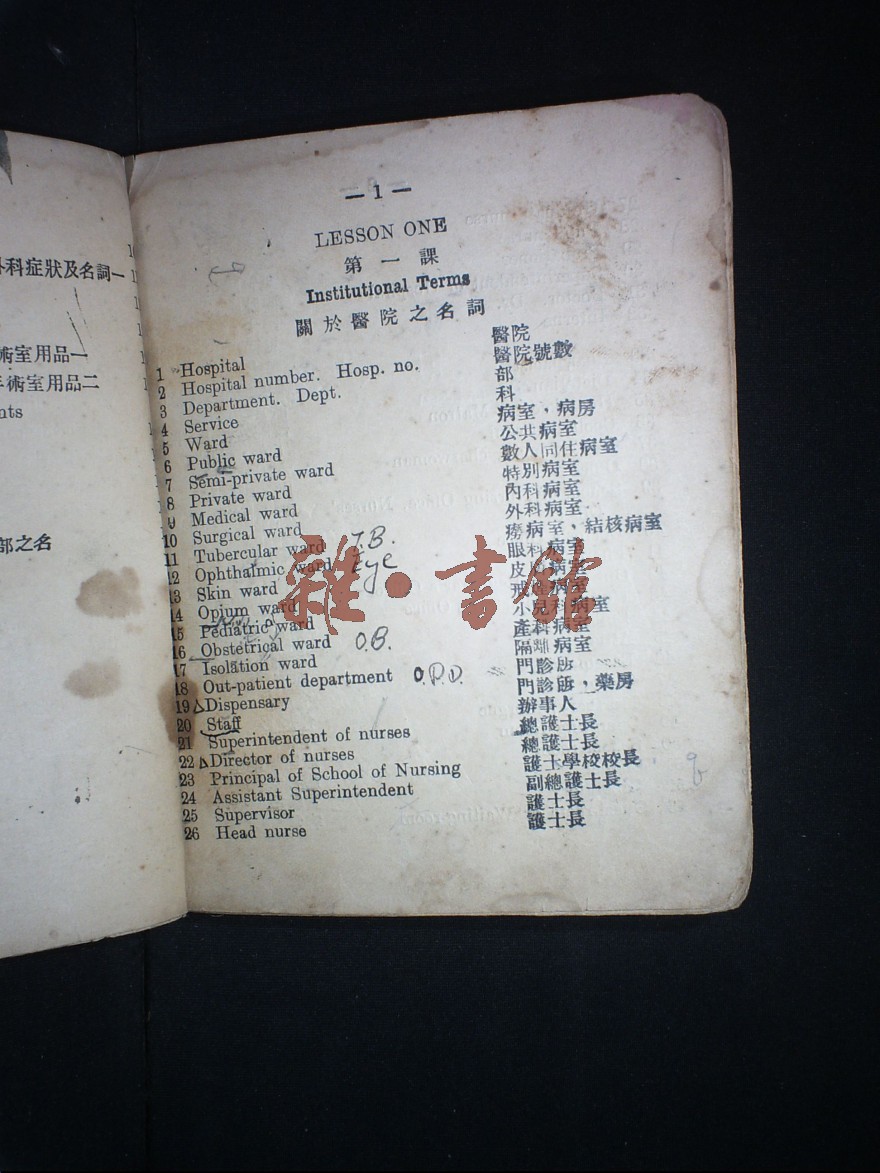 外科症狀及名詞一
術室用品一
手術室用品二
nts
部之名
— 1 —
LESSON ONE
第一課
Institutional Terms
關於醫院之名詞
1 Hospital 醫院
2 Hospital number. Hosp. no. 醫院號數
3 Department. Dept. 部
4 Service 科
5 Ward 病室，病房
6 Public ward 公共病室
7 Semi-private ward 數人同住病室
8 Private ward 特別病室
9 Medical ward 內科病室
10 Surgical ward 外科病室
11 Tubercular ward T.B. 癆病室，結核病室
12 Ophthalmic ward Eye 眼科病室
13 Skin ward 皮病室
14 Opium ward 病室
15 Pediatric ward 小兒科病室
16 Obstetrical ward O.B. 產科病室
17 Isolation ward 隔離病室
18 Out-patient department O.P.D. 門診
19 △Dispensary 門診，藥房
20 Staff 辦事人
21 Superintendent of nurses 總護士長
22 △Director of nurses 總護士長
23 Principal of School of Nursing 護士學校校長
24 Assistant Superintendent 副總護士長
25 Supervisor 護士長
26 Head nurse 護士長
雜·書館